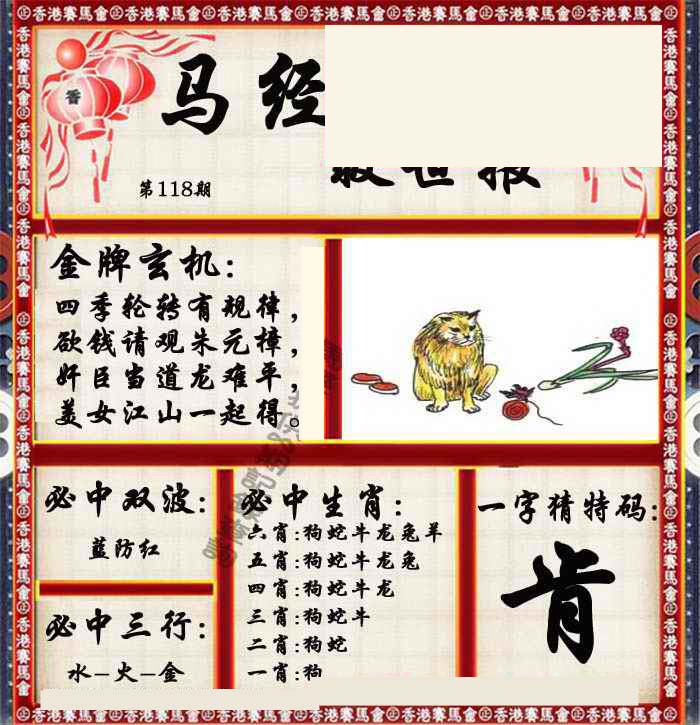 香港賽馬會
香
马经
救世报
第118期
金牌玄机:
四季轮转有规律，
欲钱请观朱元樟，
奸臣当道龙难平，
美女江山一起得。
必中双波:
蓝防红
必中三行:
水-火-金
必中生肖:
六肖:狗蛇牛龙兔羊
五肖:狗蛇牛龙兔
四肖:狗蛇牛龙
三肖:狗蛇牛
二肖:狗蛇
一肖:狗
一字猜特码:
肯